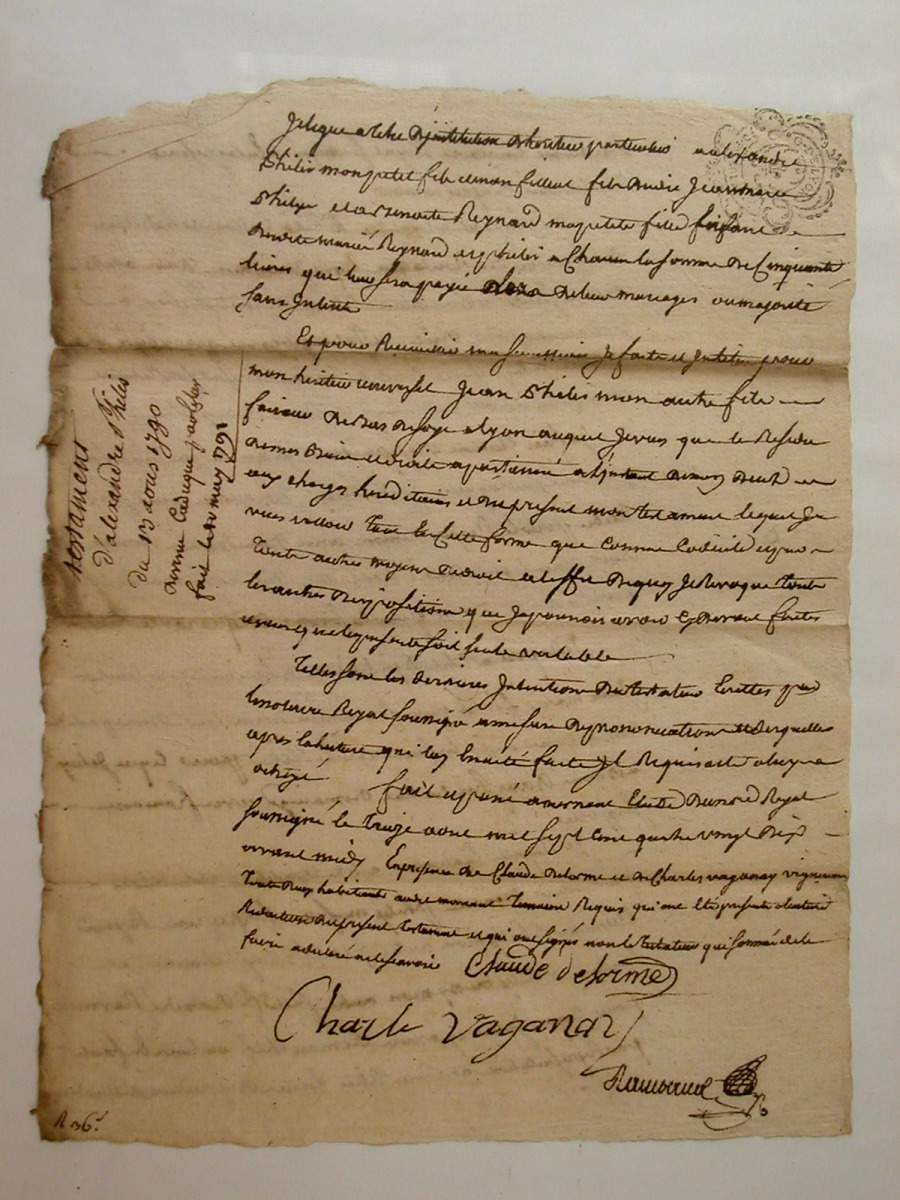 Je legue a titre d'institution d'heritier particulier a alexandre
Philis mon petit fils et mon filleul fils dudit Jean marie
Philis et a Benoite Reynard ma petite fille Enfant
Benoite marie Reynard et philis a Chacun la somme de Cinquante
livres qui leur sera payé lors de leur mariages ou majorité
sans Interet
Et pour Recueillir ma succession Je fais et Institue pour
mon heritier universel Jean Philis mon autre fils
faiseur de Bas de soye a lyon auquel Je veus que le Residu
de mes Biens et droits apartienne a l'instant de mon deces
aux charges hereditaires et du present mon testament lequel Je
veus valloir tant en Cette forme que Comme Codicile et par
toute autres moyens de droit Je Revoque toute
les autres Dispositions que Je pourrois avoir Cy devant faites
que le presente soit seule valable
Telles sont les dernieres Intentions du testateur Ecrittes par
le notaire Royal soussigné a mesure de prononciation et desquelles
apres la lecture qui luy en a été faite Il Requis acte
octroyé. fait et passé a mornant Etude du notaire Royal
soussigné le treize aout mil sept Cent quatre vingt dix
avant midy En presence de Claude delorme et de Charles vaganay vignerons
tout deux habitants audit mornant temoins Requis qui ont Eté presents
Redaction du present testament et qui ont signés non le testateur qui sommé de le
faire a declaré ne le scavoir Claude delorme
Charle vaganay
testament
d'alexandre Philis
du 13 aous 1790
devenu Caduque par
fait le 20 may 1791
R 36.